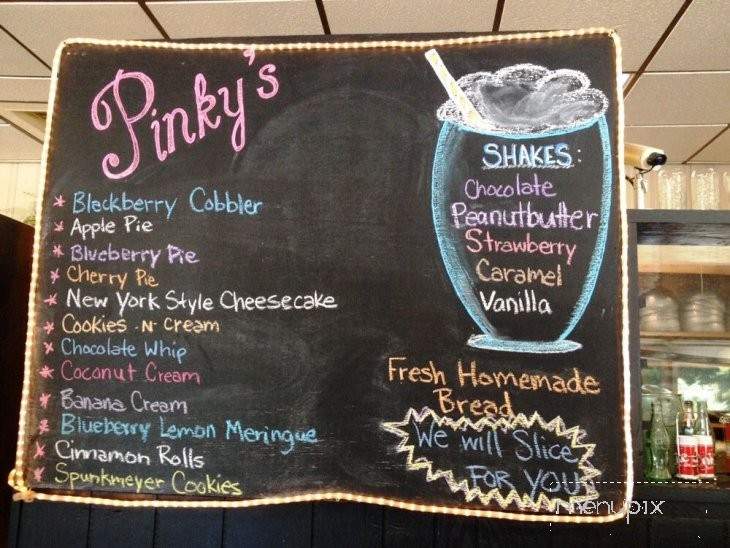 Pinky's
* Blackberry Cobbler
* Apple Pie
* Blueberry Pie
* Cherry Pie
* New York Style Cheesecake
* Cookies -N- Cream
* Chocolate Whip
* Coconut Cream
* Banana Cream
* Blueberry Lemon Meringue
* Cinnamon Rolls
* Spunkmeyer Cookies
SHAKES:
Chocolate
Peanutbutter
Strawberry
Caramel
Vanilla
Fresh Homemade
Bread
We will Slice
FOR YOU
menupix